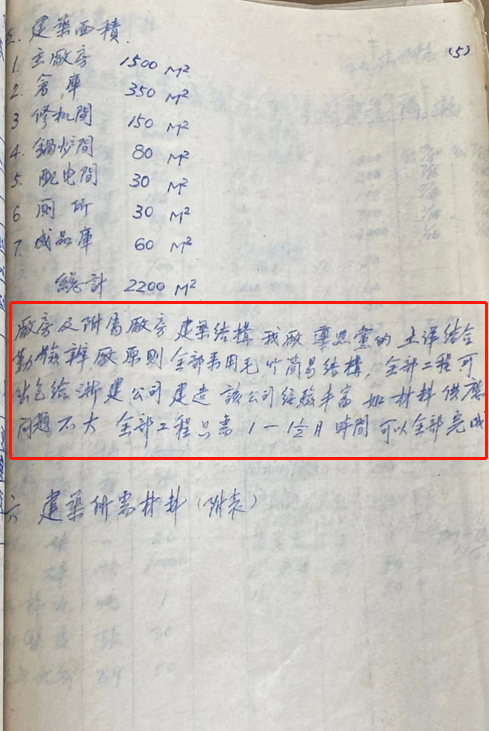 (5)
五. 建築面積.
1. 主厰房 1500 M²
2. 倉庫 350 M²
3 修机間 150 M²
4. 鍋炉間 80 M²
5. 配电間 30 M²
6 厠所 30 M²
7. 成品庫 60 M²
總計 2200 M²
厰房及附属厰房建築結構 我厰 党的土洋结合
勤儉辦厰原則 全部采用毛竹简易结構, 全部工程可
出包给浙建公司建造 該公司经驗丰富 如材料供應
问題不大 全部工程只需 1—1½月時間可以全部完成
六 建築所需材料 (附表)